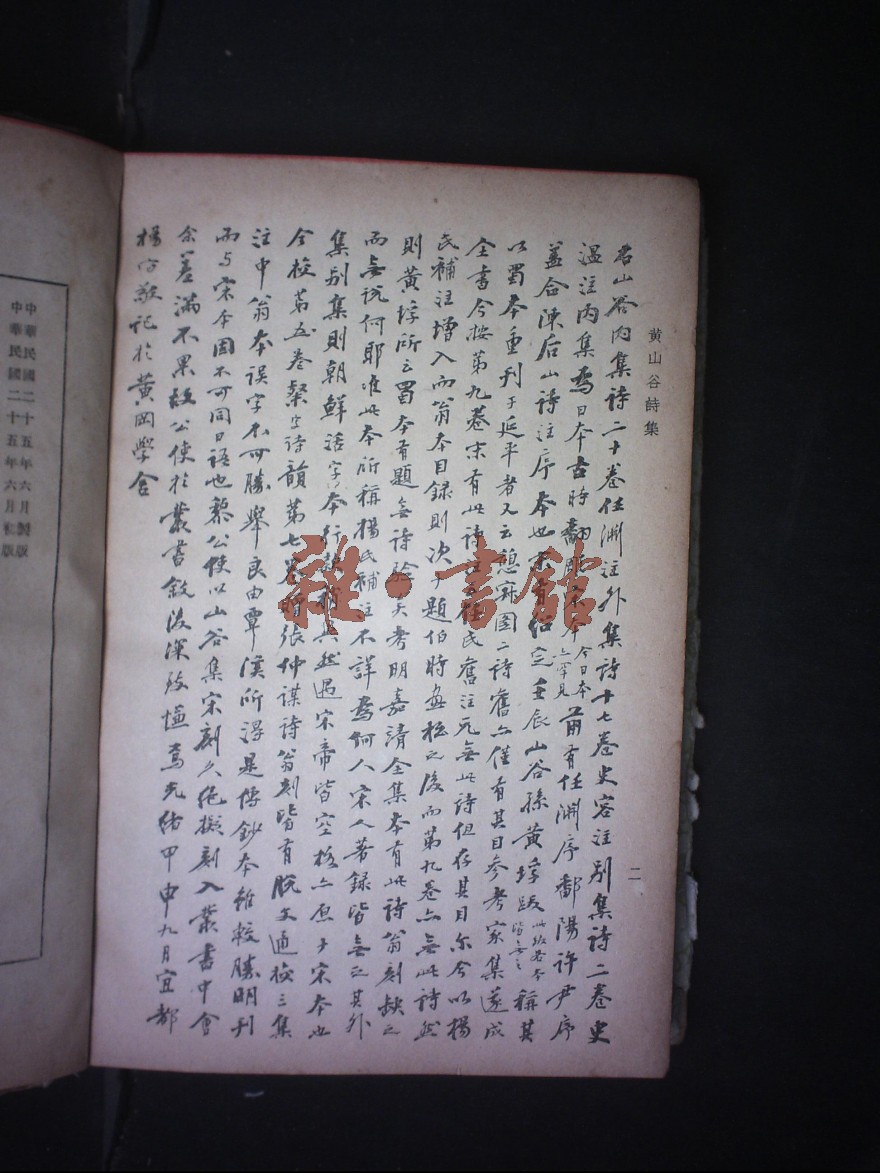 黃山谷詩集
二
右山谷內集詩二十卷任淵注外集詩十七卷史容注別集詩二卷史
溫注內集為日本古時翻雕宋本今日本亦罕見前有任淵序鄱陽許尹序
蓋合陳后山詩注序本也末有紹定壬辰山谷孫黃垺跋此跋各本皆無之稱其
以蜀本重刊于延平者又云憩寂圖二詩舊亦僅有其目參考家集遂成
全書今按第九卷末有此詩任氏舊注元無此詩但存其目尔今以楊
民補注增入而翁本目錄則次于題伯時畫之後而第九卷亦無此詩然
則黃垺所云蜀本有題無詩矣考明嘉清全集本有此詩翁刻缺之
而無說何耶唯此本所稱楊氏補注不詳為何人宋人著錄皆無之其外
集別集則朝鮮活字本行款遇宋帝皆空格亦原于宋本也
今校第五卷粲字詩韻第七卷贈張仲謀詩翁刻皆有脫文通校三集
注中翁本誤字不可勝舉良由覃溪所得是傳鈔本雖較勝明刊
而与宋本固不可同日語也黎公使以山谷集宋刻久絕擬刻入叢書中會
余差滿不果故公使於叢書敘後深致慊焉光緒甲申九月宜都
楊守敬記於黃岡學舍
中華民國二十五年六月製版
中華民國二十五年六月版
雜·書館